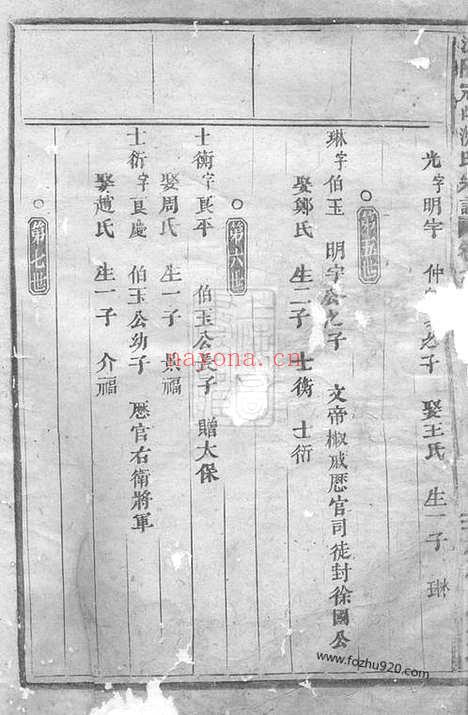 光字明宇 仲 之子 娶王氏 生一子 琳
第五世
琳字伯玉 明宇公之子 文帝椒戚歷官司徒封徐國公
娶鄭氏 生二子 士衡 士衍
第六世
士衡字良平 伯玉公長子 贈太保
娶周氏 生一子 景福
士衍字良慶 伯玉公幼子 歷官右衛將軍
娶趙氏 生一子 介福
第七世
nayona.cn
www.fozhu920.com